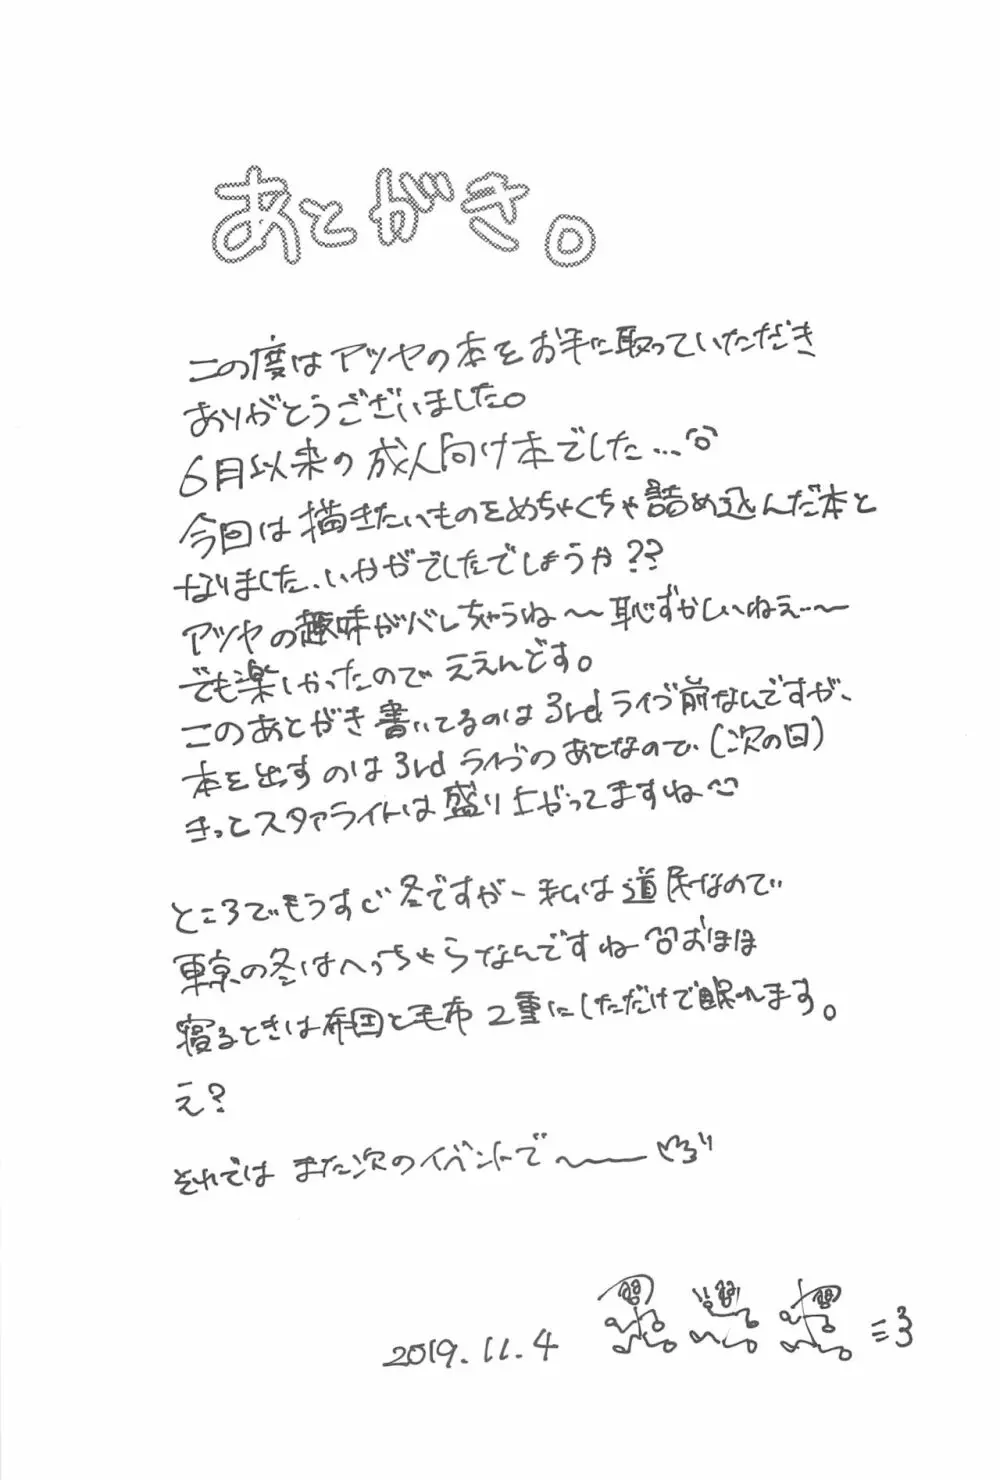 あとがき。
この度はアツヤの本をお手に取っていただき
ありがとうございました。
6月以来の成人向け本でした…
今回は描きたいものをめちゃくちゃ詰め込んだ本と
なりました、いかがでしたでしょうか??
アツヤの趣味がバレちゃうね〜恥ずかしいねぇ…〜
でも楽しかったのでええんです。
このあとがき書いてるのは3rdライブ前なんですが、
本を出すのは3rdライブのあとなので、(次の日)
きっとスタァライトは盛り上がってますね
ところでもうすぐ冬ですがー私は道民なので
東京の冬はへっちゃらなんですねおほほ
寝るときは布団と毛布2重にしただけで眠れます。
え?
それでは また次のイベントで〜
2019.11.4